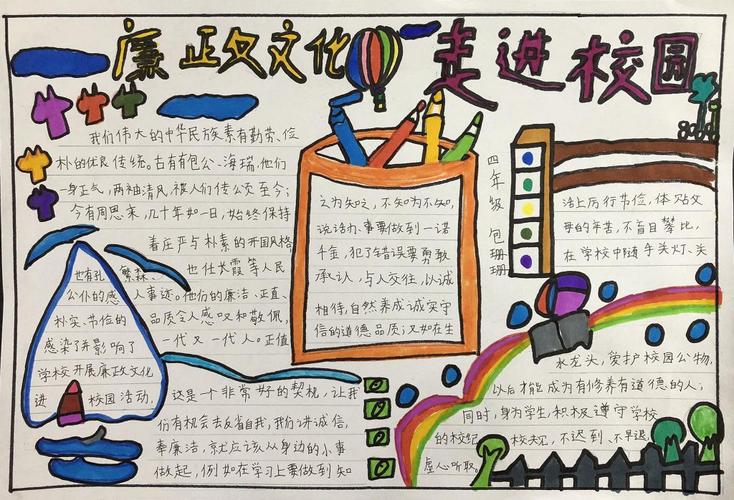 廉政文化 走进校园
我们伟大的中华民族素有勤劳、俭
朴的优良传统。古有包公、海瑞,他们
一身正气,两袖清风,被人们传公交至今;
今有周思来,几十年如一日,始终保持
着庄严与朴素的开国风格
也有孔 繁森、 也仕长霞等人民
公仆的感人事迹。他们的廉洁、正直、
朴实、节俭的品质令人感叹和敬佩,
感染了并影响了一代又一代人。正值
学校开展廉政文化
进 校园活动,这是一个非常好的契机,让我
们有机会去反省自我,我们讲诚信,
奉廉洁,就应该从身边的小事
做起,例如在学习上要做到知
之为知之,不知为不知,
说话办事要做到一诺
千金,犯了错误要勇敢
承认,与人交往,以诚
相待,自然养成诚实守
信的道德品质;又如在生
四年级 包珊珊
活上厉行节俭,体贴父
母的辛苦,不盲目攀比,
在学校中随手关灯、关
水龙头,爱护校园公物,
以后才能成为有修养有道德的人;
同时,身为学生,积极遵守学校
的校纪 校规,不迟到、不早退,
虚心听取。